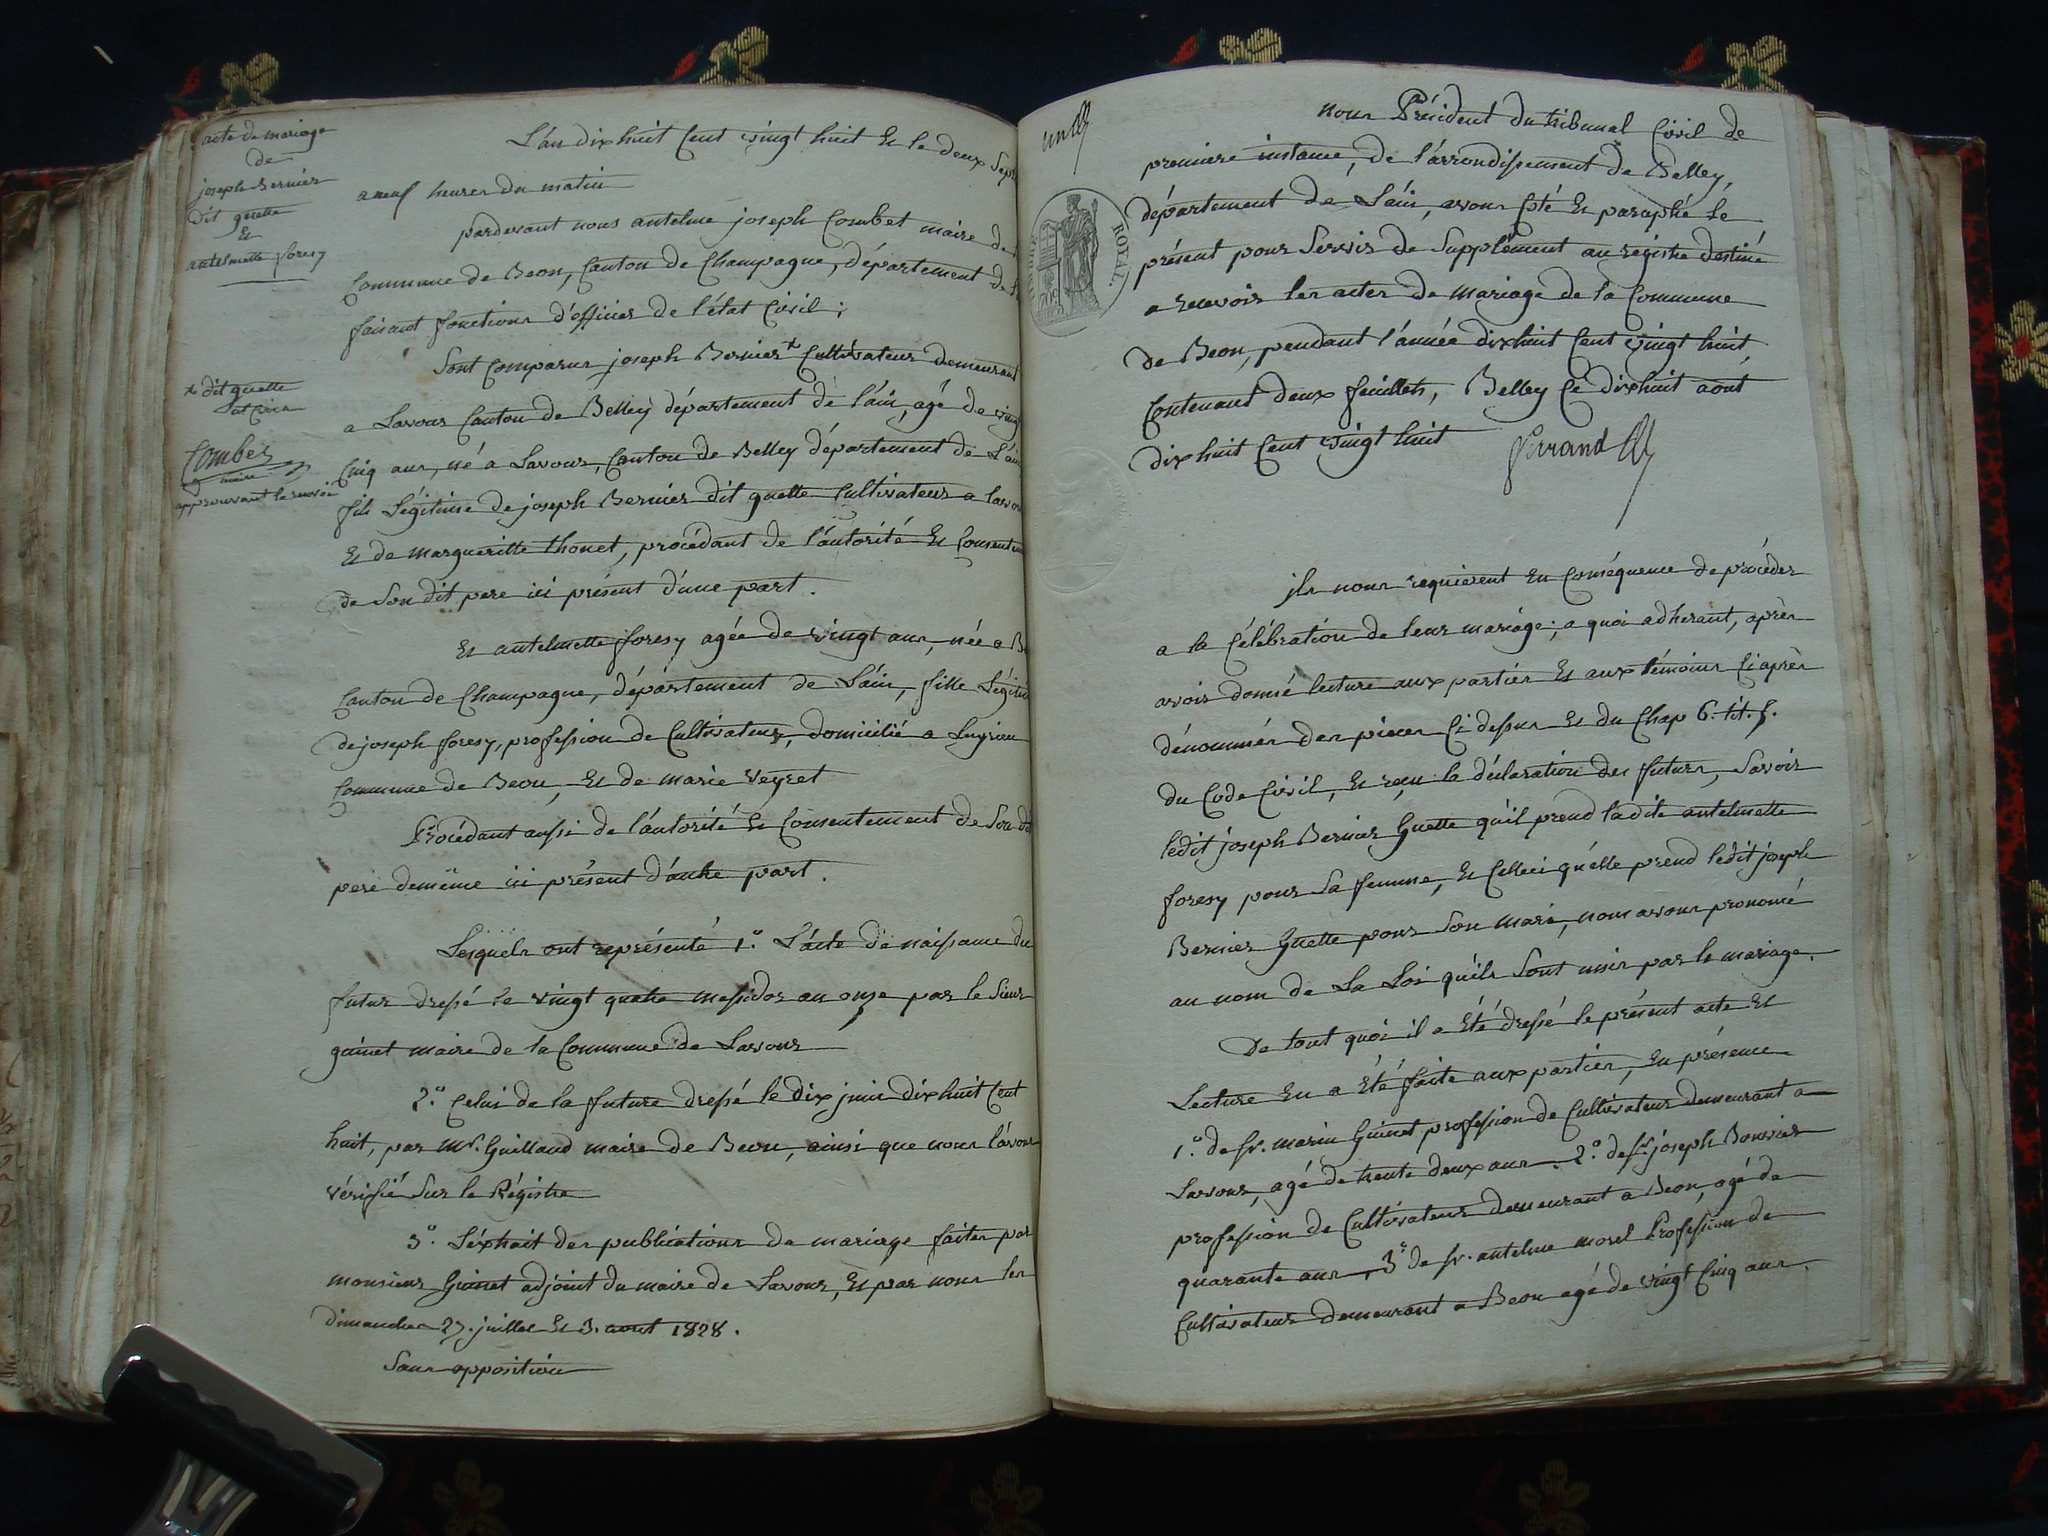 acte de mariage
de
joseph Bernier
dit guette
et
antelmette foresy
L'an dix huit Cent vingt huit et le deux Sept
a neuf heures du matin
pardevant nous antelme joseph Combet maire de
Commune de Beon, Canton de Champagne, département de
faisant fonctions d'officier de l'état Civil;
Sont Comparus joseph Bernier + Cultivateur demeurant
+ dit guette
Combet
maire
approuvant le renvoi
a Lavour Canton de Belley département de l'ain, agé de vingt
Cinq ans, né a Lavour, Canton de Belley département de L'ain
fils Légitime de joseph Bernier dit guette Cultivateur a Lavour
Et de margueritte thonet, procédant de l'autorité Et Consentem
de Son dit pere ici présent d'une part.
Et antelmette foresy agée de vingt ans, née a Be
Canton de Champagne, département de L'ain, fille Légitime
de joseph foresy, profession de Cultivateur, domicilié a Luyrieu
Commune de Beon, Et de marie Veyret
Procédant aussi de l'autorité Et Consentement de Son dit
pere demême ici présent d'autre part.
Lesquels ont représenté 1.° L'acte de naissance du
futur dressé le vingt quatre messidor an onze par le Sieur
guinet maire de la Commune de Lavour
2.° Celui de la future dressé le dix juin dix huit Cent
huit, par Mr. Guillaud maire de Beon, ainsi que nous l'avons
vérifié Sur le Régistre
3.° L'éxtrait des publications de mariage faites par
monsieur Guinet adjoint du maire de Lavour, Et par nous les
dimanches 27. juillet Et 3. aout 1828.
Sans opposition
un
ROYAL.
nous Président du tribunal Civil de
premiere instance, de l'arrondissement de Belley,
département de L'ain, avons Coté Et paraphé le
présent pour Servir de Supplément au régistre destiné
a recevoir les actes de mariage de la Commune
de Beon, pendant l'année dix huit Cent vingt huit
Contenant deux feuillets, Belley Ce dix huit août
dix huit Cent vingt huit
ils nous requierent En Conséquence de procéder
a la Célébration de leur mariage; a quoi adherant, après
avoir donné lecture aux parties Et aux témoins Ci après
dénommés des pieces Ci dessus Et du Chap 6. tit. 5.
du Code Civil, Et reçu la déclaration des futurs, Savoir
ledit joseph Bernier Guette qu'il prend ladite antelmette
foresy pour Sa femme, Et Celleci qu'elle prend ledit joseph
Bernier Guette pour Son mari, nous avons prononcé
au nom de La Loi qu'ils Sont unis par le mariage.
De tout quoi il a Eté dressé le présent acte Et
Lecture En a Eté faite aux parties, En présence
1.° de Sr. marin Guinet profession de Cultivateur demeurant a
Lavour, agé de trente deux ans. 2.° de Sr. joseph Bouvier
profession de Cultivateur demeurant a Beon, agé de
quarante ans, 3.° de Sr. antelme morel Profession de
Cultivateur demeurant a Beon agé de vingt Cinq ans.